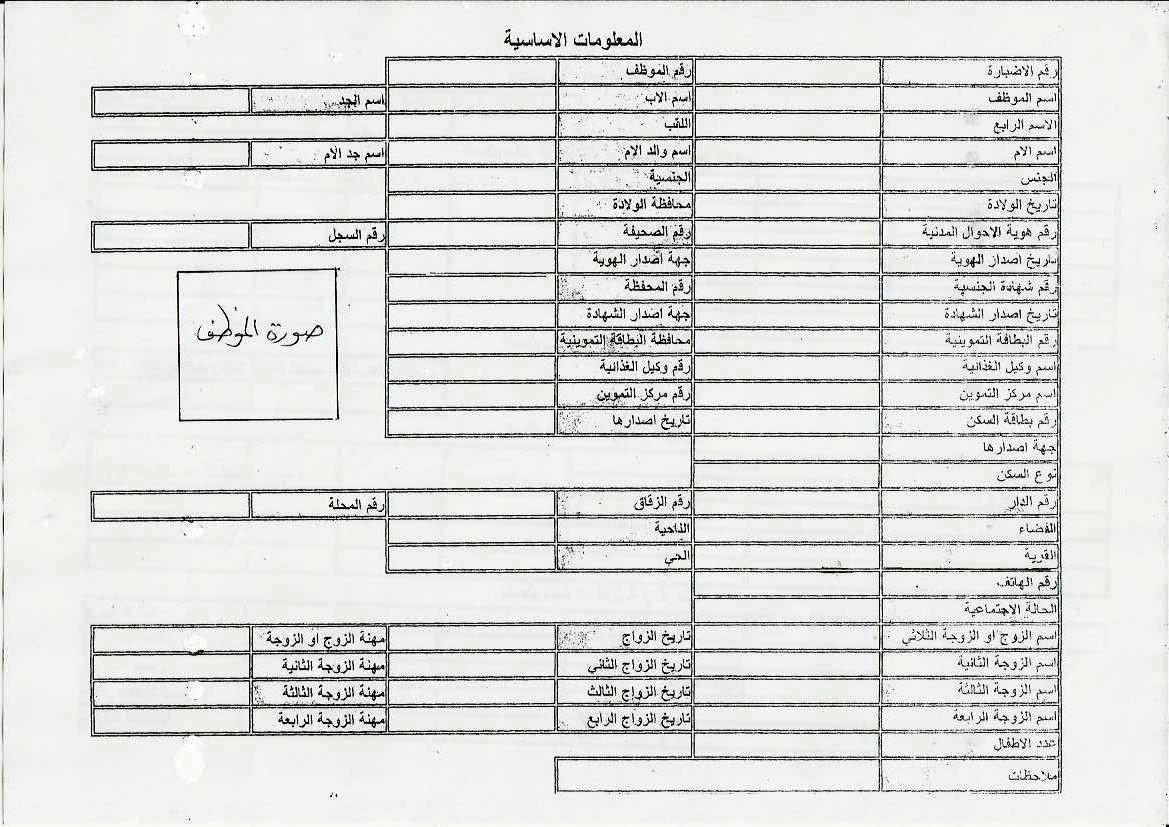 المعلومات الاساسية
رقم الاضبارة رقم الموظف
اسم الموظف اسم الاب اسم الجد
الاسم الرابع اللقب
اسم الام اسم والد الام اسم جد الام
الجنس الجنسية
تاريخ الولادة محافظة الولادة
رقم هوية الاحوال المدنية رقم الصحيفة رقم السجل
تاريخ اصدار الهوية جهة اصدار الهوية
رقم شهادة الجنسية رقم المحفظة
تاريخ اصدار الشهادة جهة اصدار الشهادة
صورة الموظف
رقم البطاقة التموينية محافظة البطاقة التموينية
اسم وكيل الغذائية رقم وكيل الغذائية
اسم مركز التموين رقم مركز التموين
رقم بطاقة السكن تاريخ اصدارها
جهة اصدارها
نوع السكن
رقم الدار رقم الزقاق رقم المحلة
القضاء الناحية
القرية الحي
رقم الهاتف
الحالة الاجتماعية
اسم الزوج او الزوجة الثلاثي تاريخ الزواج مهنة الزوج او الزوجة
اسم الزوجة الثانية تاريخ الزواج الثاني مهنة الزوجة الثانية
اسم الزوجة الثالثة تاريخ الزواج الثالث مهنة الزوجة الثالثة
اسم الزوجة الرابعة تاريخ الزواج الرابع مهنة الزوجة الرابعة
عدد الاطفال
ملاحظات